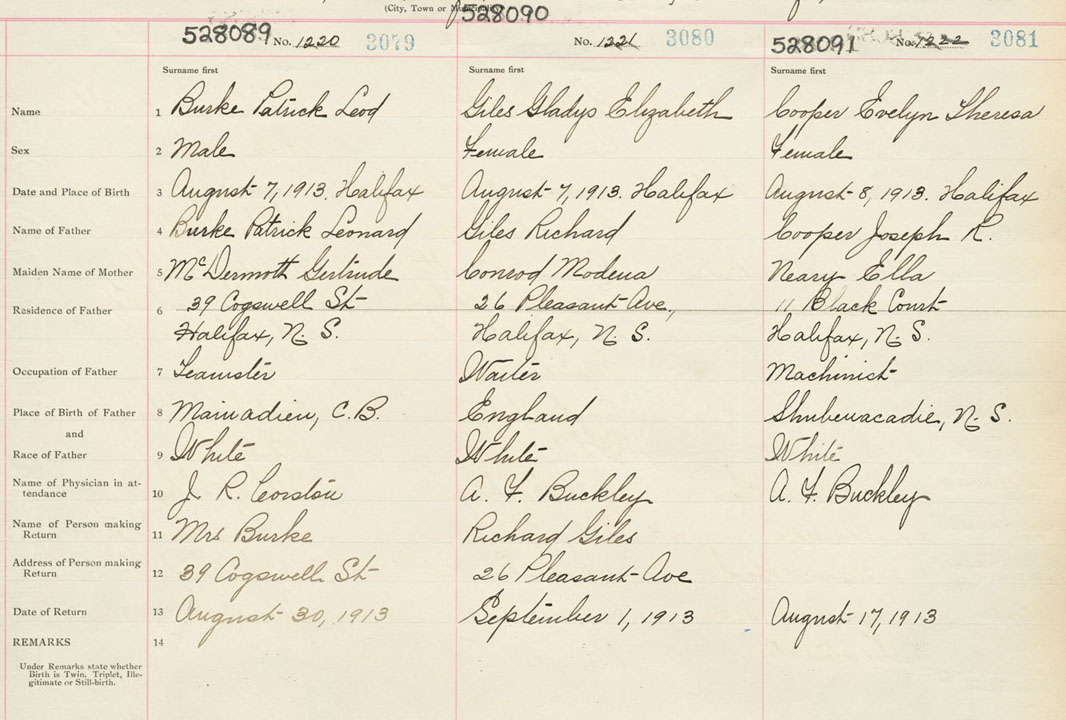 (City, Town or Municipality)
528089 No. 1220 3079 528090 No. 1221 3080 528091 No. 1222 3081
Surname first Surname first Surname first
Name 1 Burke Patrick Leod Giles Gladys Elizabeth Cooper Evelyn Theresa
Sex 2 Male Female Female
Date and Place of Birth 3 August 7, 1913. Halifax August 7, 1913. Halifax August 8, 1913. Halifax
Name of Father 4 Burke Patrick Leonard Giles Richard Cooper Joseph R.
Maiden Name of Mother 5 McDermott Gertrude Conrod Modena Neary Ella
Residence of Father 6 39 Cogswell St 26 Pleasant Ave., 11 Black Court
Halifax, N. S. Halifax, N. S. Halifax, N. S.
Occupation of Father 7 Teamster Waiter Machinist
Place of Birth of Father 8 Mainadieu, C. B. England Shubenacadie, N. S.
and
Race of Father 9 White White White
Name of Physician in at-
tendance 10 J. R. Corston A. F. Buckley A. F. Buckley
Name of Person making
Return 11 Mrs Burke Richard Giles
Address of Person making
Return 12 39 Cogswell St 26 Pleasant Ave
Date of Return 13 August 30, 1913 September 1, 1913 August 17, 1913
REMARKS 14
Under Remarks state whether
Birth is Twin, Triplet, Ille-
gitimate or Still-birth.